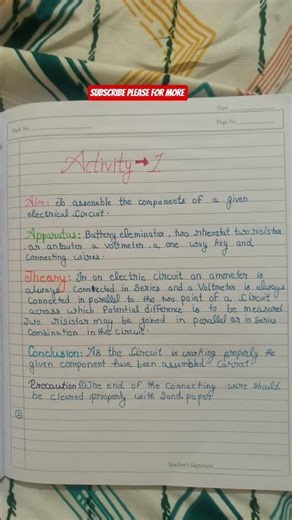 SUBSCRIBE PLEASE FOR MORE
Date
Expt. No.
Page No.
Activity → 1
Aim: To assemble the components of a given
electrical circuit.
Apparatus: Battery eleminator, two rheostat two risistor
an ambuter a voltmeter a one way key and
Connecting wires.
Theory: In an electric circuit an ammeter is
always Connected in Series and a Voltmeter is always
Connected in parallel to the two point of a Circuit
across which Potential difference is to be measured
Two risistor may be joined in parallel or in Series
Combination in the circuit.
Conclusion: As the Circuit is working properly the
given component have been assumbled Correct
Precaution: ① The end of the connecting wire should
be cleared properly with Sand paper
②
Teacher's Signature